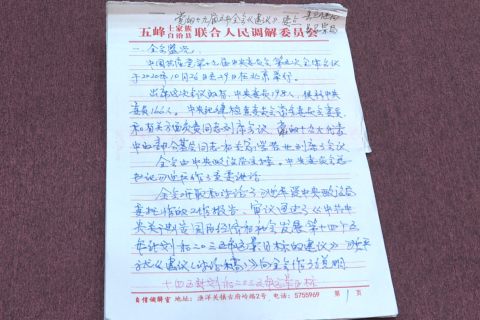 党的十九届五中全会《建议》要点
五峰土家族自治县联合人民调解委员会
一、全会盛况:
中国共产党第十九届中央委员会第五次全体会议
于2020年10月26日至29日在北京举行。
出席这次会议的有,中央委员198人,候补中央
委员166人。中央纪律检查委员会常务委员会委员
和有关方面负责同志列席会议。党的十九大代表
中的部分基层同志和专家学者也列席了会议
全会由中央政治局主持。中央委员会总
书记习近平作了重要讲话
全会听取和讨论了习近平受中央政治局
委托作的工作报告,审议通过了《中共中
央关于制定国民经济和社会发展第十四个五
年计划和二〇三五年远景目标的建议》习近平
就《建议(讨论稿)》向全会作了说明
十四五计划和二〇三五年远景目标
自信调解室 地址:渔洋关镇古府岭路2号 电话:5755969 第1页